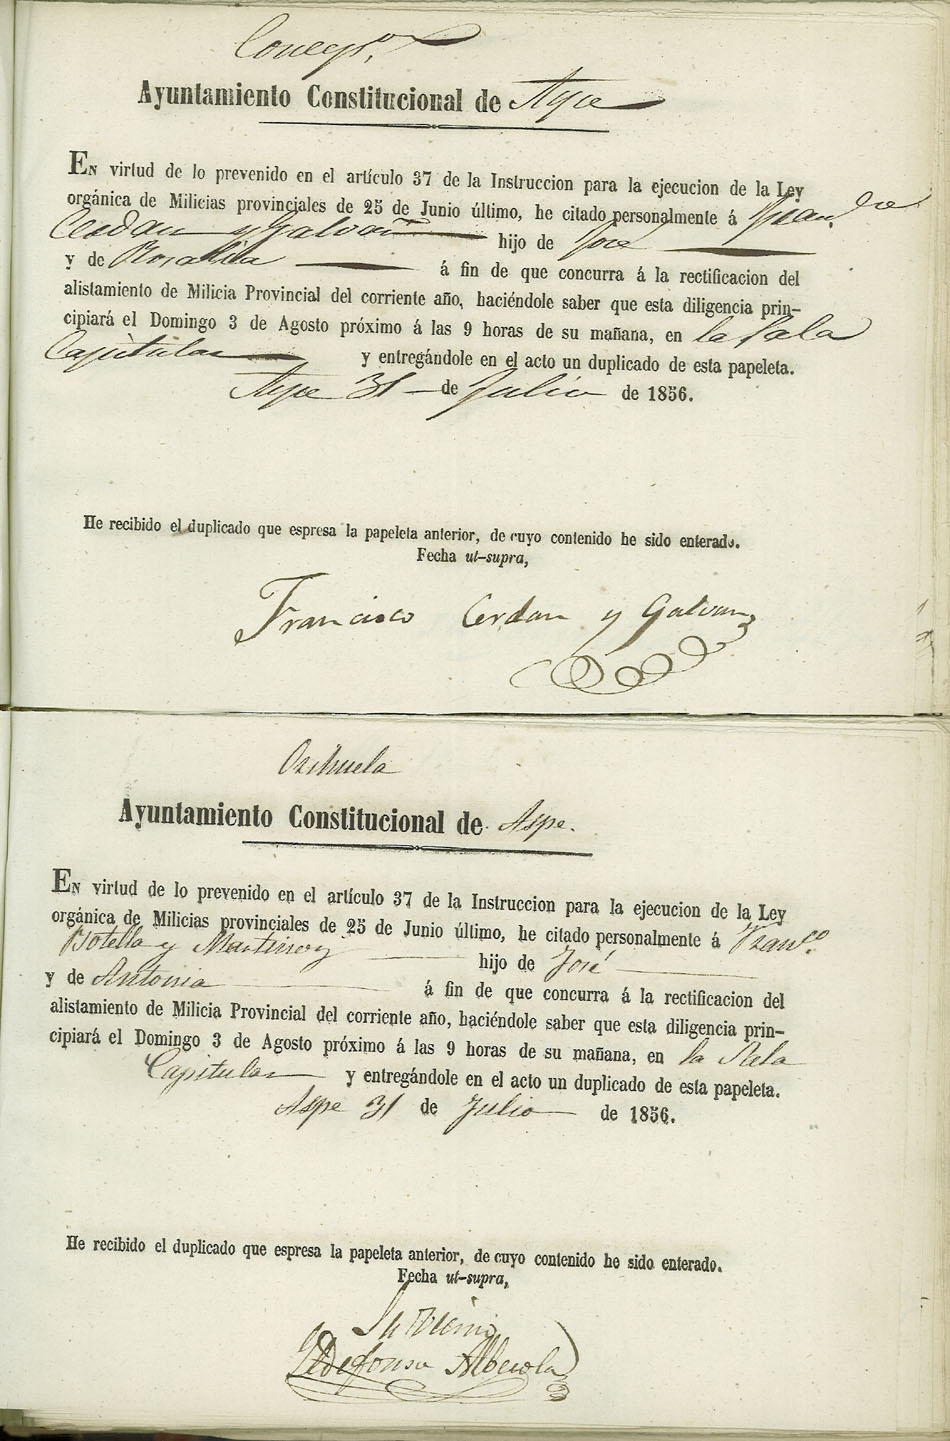 Concep.
Ayuntamiento Constitucional de Aspe
En virtud de lo prevenido en el artículo 37 de la Instruccion para la ejecucion de la Ley
orgánica de Milicias provinciales de 25 de Junio último, he citado personalmente á Fran.co
Cerdan y Galvañ hijo de José
y de Rosalia á fin de que concurra á la rectificacion del
alistamiento de Milicia Provincial del corriente año, haciéndole saber que esta diligencia prin-
cipiará el Domingo 3 de Agosto próximo á las 9 horas de su mañana, en la Sala
Capitular y entregándole en el acto un duplicado de esta papeleta.
Aspe 31 de Julio de 1856.
He recibido el duplicado que espresa la papeleta anterior, de cuyo contenido he sido enterado.
Fecha ut-supra,
Francisco Cerdan y Galvan
Orihuela
Ayuntamiento Constitucional de Aspe.
En virtud de lo prevenido en el artículo 37 de la Instruccion para la ejecucion de la Ley
orgánica de Milicias provinciales de 25 de Junio último, he citado personalmente á Fran.co
Botella y Martinez hijo de José
y de Antonia á fin de que concurra á la rectificacion del
alistamiento de Milicia Provincial del corriente año, haciéndole saber que esta diligencia prin-
cipiará el Domingo 3 de Agosto próximo á las 9 horas de su mañana, en la Sala
Capitular y entregándole en el acto un duplicado de esta papeleta.
Aspe 31 de Julio de 1856.
He recibido el duplicado que espresa la papeleta anterior, de cuyo contenido he sido enterado.
Fecha ut-supra,
Su
Ildefonso Alberola